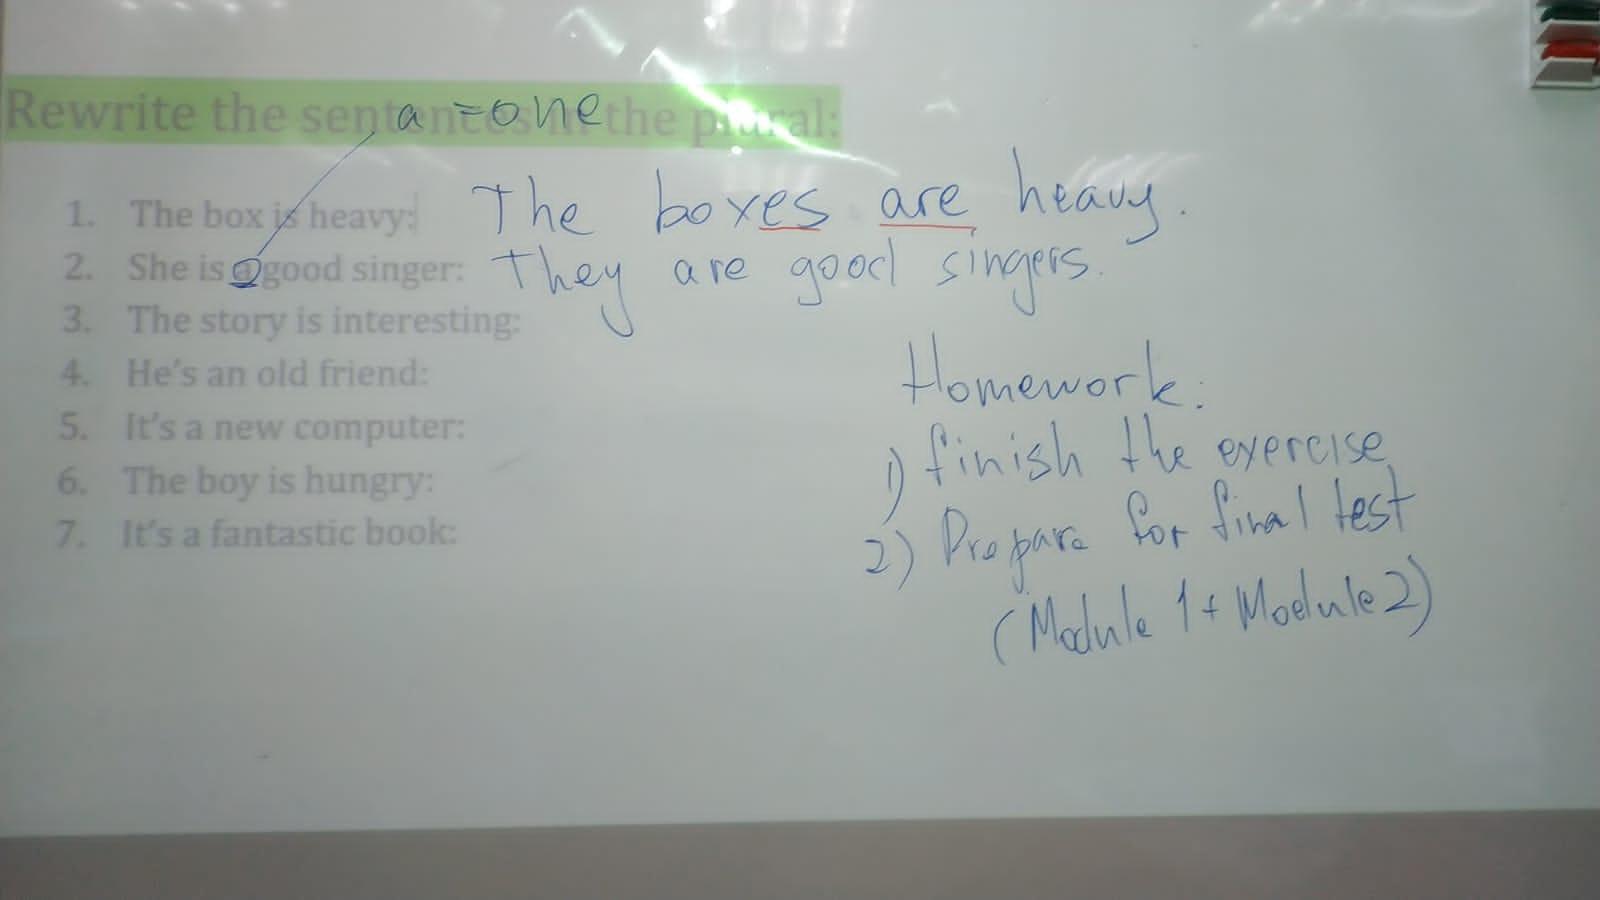 Rewrite the sentences in the plural:
a = one
1. The box is heavy: The boxes are heavy.
2. She is a good singer: They are good singers.
3. The story is interesting:
4. He's an old friend:
5. It's a new computer:
6. The boy is hungry:
7. It's a fantastic book:
Homework:
1) finish the exercise
2) Prepare for final test
(Module 1 + Module 2)